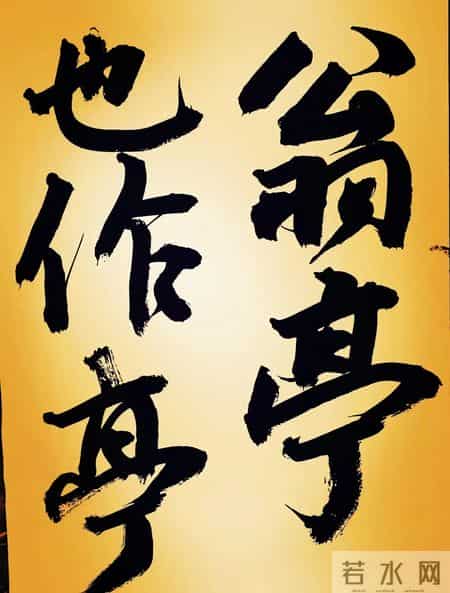 翁亭
也作亭
若水网